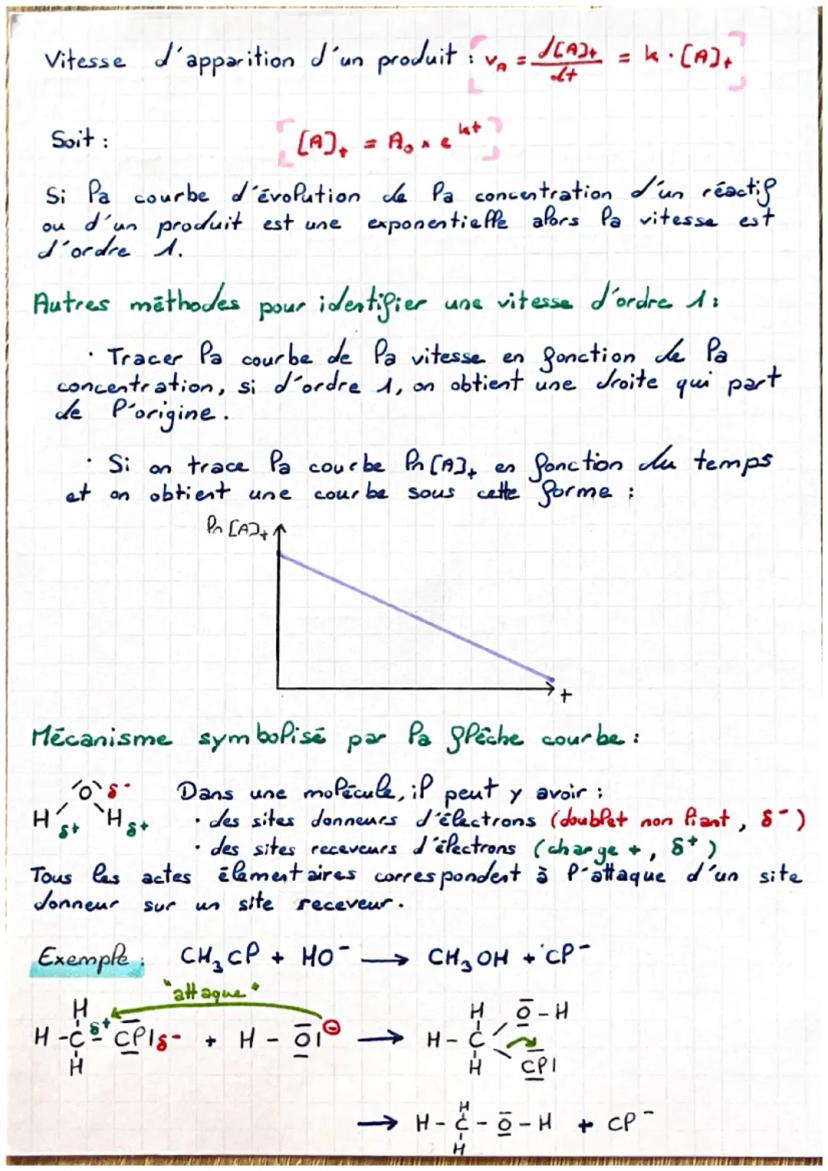 Vitesse d'apparition d'un produit : v_A = d[A]t/dt = k · [A]t
Soit : [A]t = A₀ × e^kt
Si la courbe d'évolution de la concentration d'un réactif
ou d'un produit est une exponentielle alors la vitesse est
d'ordre 1.
Autres méthodes pour identifier une vitesse d'ordre 1 :
· Tracer la courbe de la vitesse en fonction de la
concentration, si d'ordre 1, on obtient une droite qui part
de l'origine.
· Si on trace la courbe ln[A]t en fonction du temps
et on obtient une courbe sous cette forme :
ln [A]t
t
Mécanisme symbolisé par la flèche courbe :
O δ-
H δ+ H δ+
Dans une molécule, il peut y avoir :
· des sites donneurs d'électrons (doublet non liant, δ-)
· des sites receveurs d'électrons (charge +, δ+)
Tous les actes élémentaires correspondent à l'attaque d'un site
donneur sur un site receveur.
Exemple : CH₃Cl + HO⁻ → CH₃OH + Cl⁻
"attaque"
H H O - H
H - C δ+ - Cl| δ- + H - O| ⊖ → H - C
H H Cl|
H
→ H - C - O - H + Cl⁻
H